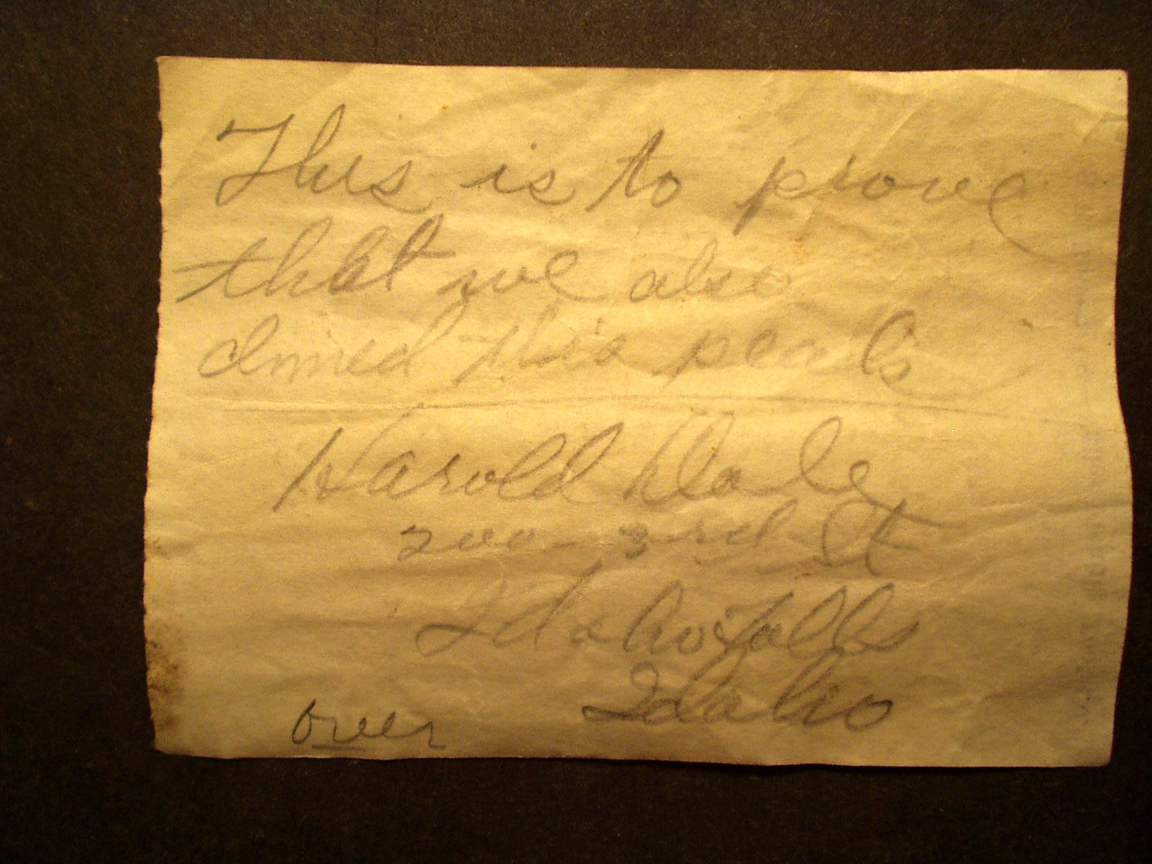 This is to prove
that we also
climed this peak
Harold Dale
200 - 3rd St
Idaho Falls
Idaho
over